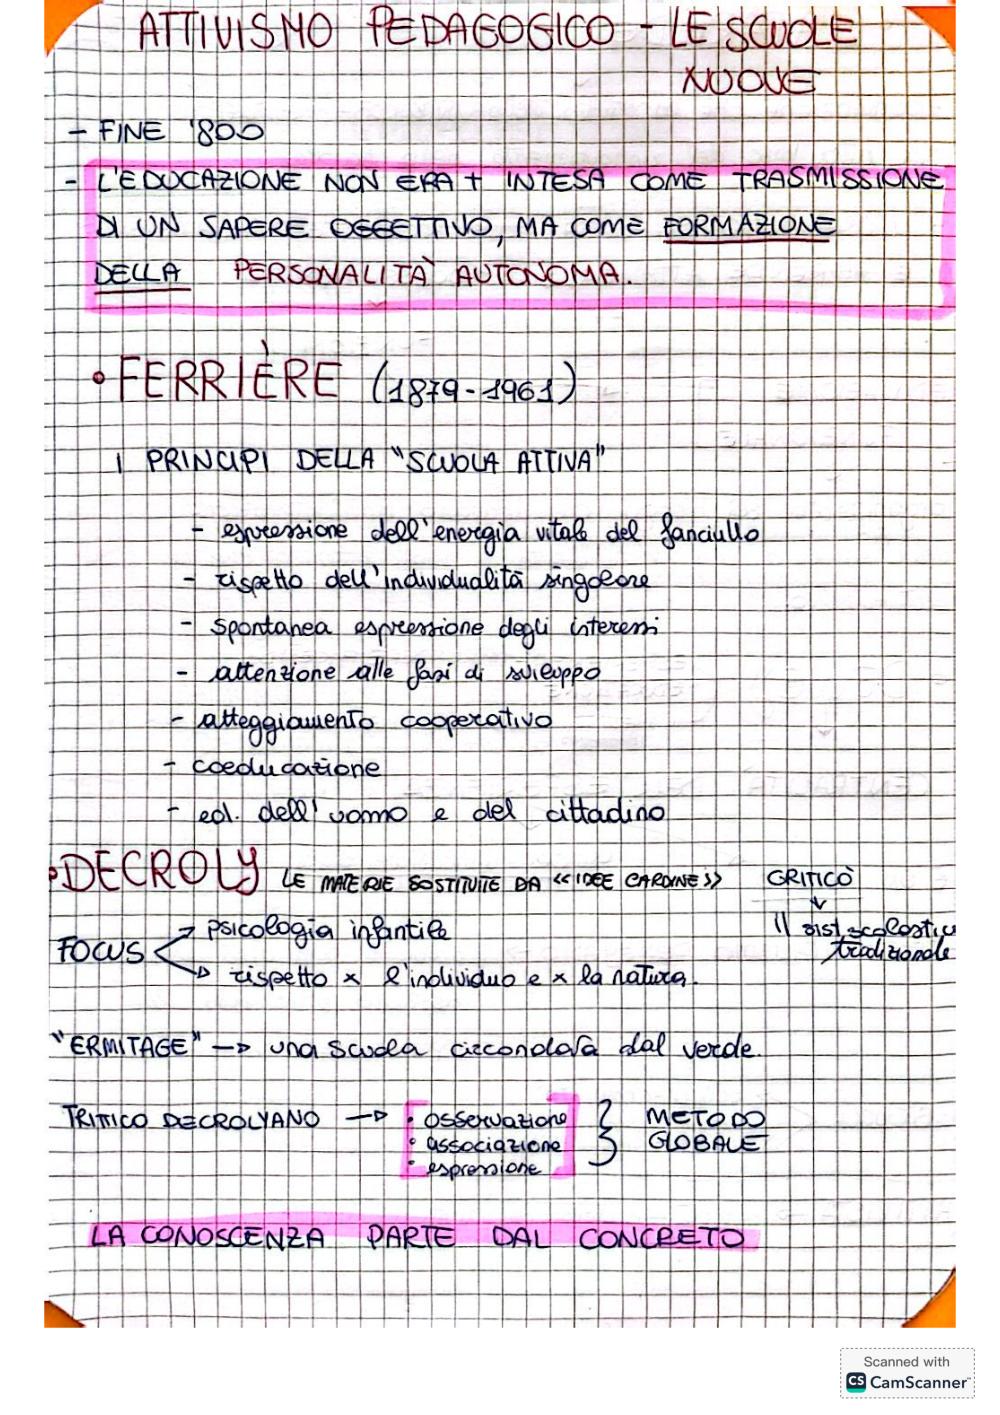 ATTIVISMO PEDAGOGICO - LE SCUOLE
NUOVE
- FINE '800
- L'EDUCAZIONE NON ERA + INTESA COME TRASMISSIONE
DI UN SAPERE OGGETTIVO, MA COME FORMAZIONE
DELLA PERSONALITÀ AUTONOMA.
• FERRIÈRE (1879-1961)
I PRINCIPI DELLA "SCUOLA ATTIVA"
- espressione dell'energia vitale del fanciullo
- rispetto dell'individualità singolare
- spontanea espressione degli interessi
- attenzione alle fasi di sviluppo
- atteggiamento cooperativo
- coeducazione
- ed. dell'uomo e del cittadino
• DECROLY LE MATERIE SOSTITUITE DA <<IDEE CARDINE>> CRITICÒ
↓
Il sist scolastico
tradizionale
FOCUS → psicologia infantile
→ rispetto x l'individuo e x la natura.
"ERMITAGE" → una scuola circondata dal verde.
TRITTICO DECROLYANO → • osservazione } METODO
• associazione GLOBALE
• espressione
LA CONOSCENZA PARTE DAL CONCRETO
Scanned with
CS CamScanner